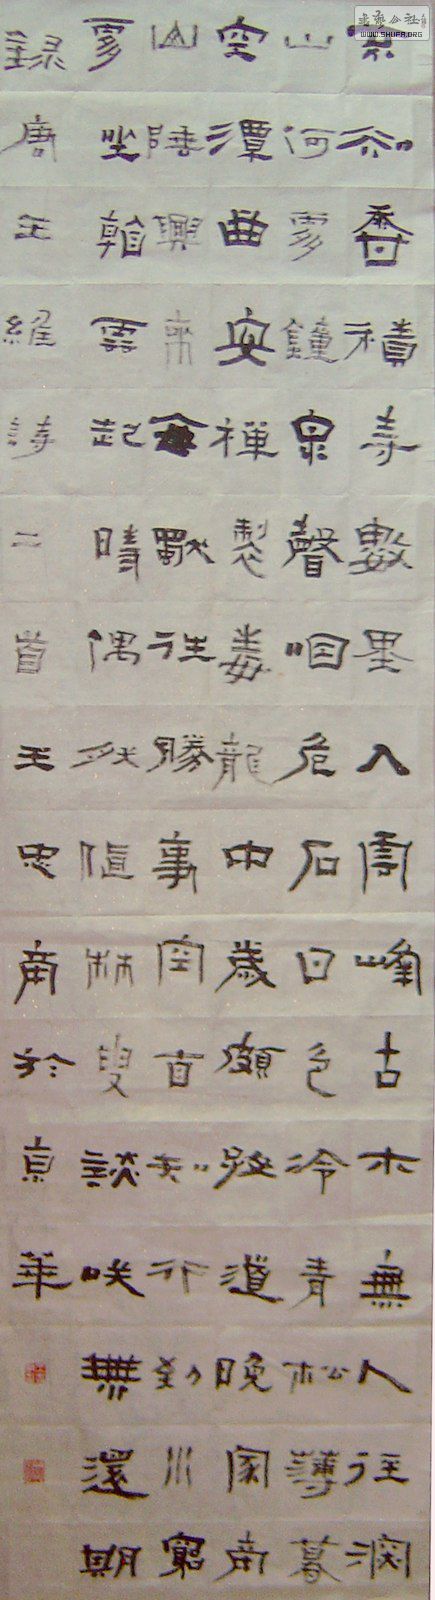 不知香積寺數里入雲峰古木無人徑深
山何處鐘泉聲咽危石日色冷青松薄暮
空潭曲安禪製毒龍中歲頗好道晚家南
山陲興來每獨往勝事空自知行到水窮
處坐看雲起時偶然值林叟談笑無還期
錄唐王維詩二首王忠南於京華
WWW.SHUFA.ORG